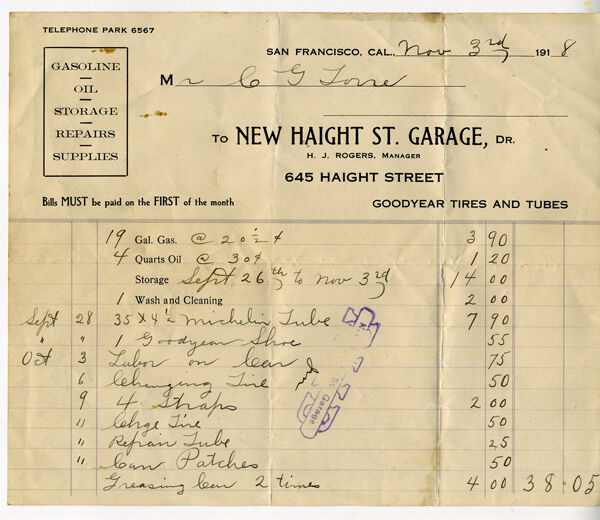 TELEPHONE PARK 6567
SAN FRANCISCO, CAL., Nov 3rd 1918
GASOLINE
OIL
STORAGE
REPAIRS
SUPPLIES
Mr C G Torre
To NEW HAIGHT ST. GARAGE, DR.
H. J. ROGERS, MANAGER
645 HAIGHT STREET
Bills MUST be paid on the FIRST of the month
GOODYEAR TIRES AND TUBES
19 Gal. Gas. @ 20 1/2 ¢ 3 90
4 Quarts Oil @ 30¢ 1 20
Storage Sept 26th to Nov 3rd 14 00
1 Wash and Cleaning 2 00
Sept 28 35 X 4 1/2 Michelin Tube 7 90
" " 1 Goodyear Shoe 55
Oct 3 Labor on Car 75
6 Changing Tire 50
9 4 Straps 2 00
" Chge Tire 50
" Repair Tube 25
" Can Patches 50
Greasing Car 2 times 4 00 38 05
Garage